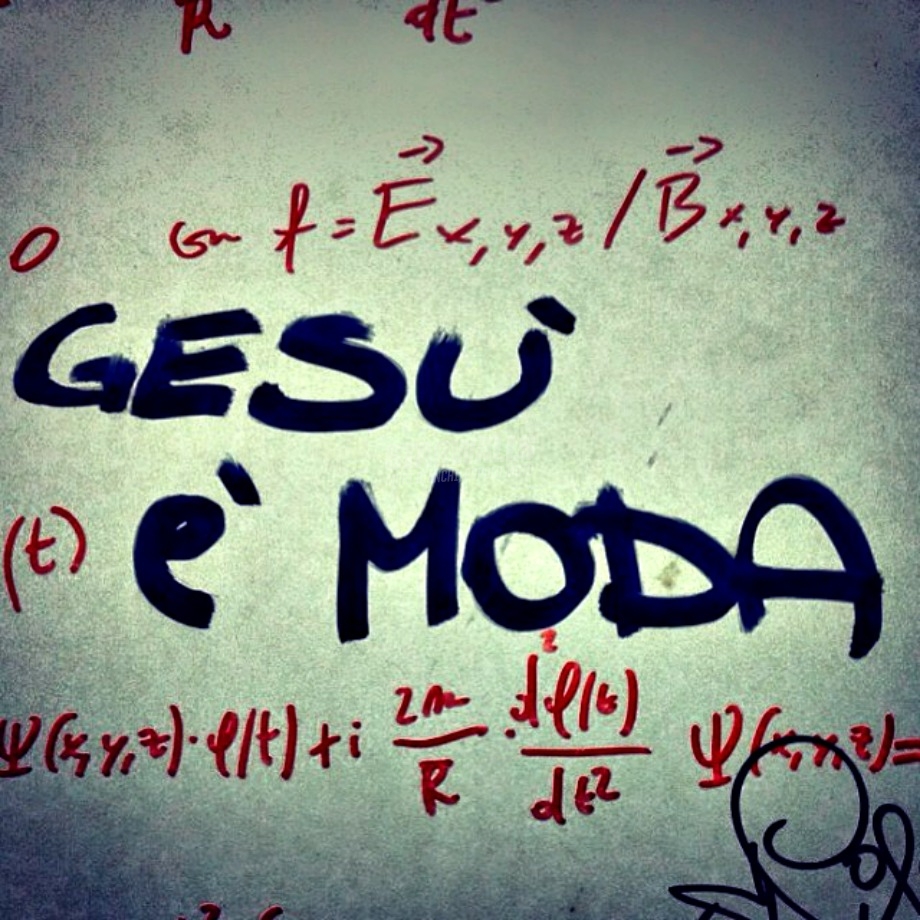 R dt
0 con f = E⃗ x,y,z / B⃗ x,y,z
GESÙ
(t) è MODA
Ψ(x,y,z)·φ(t) + i 2m/R · d²φ(t)/dt² Ψ(x,y,z) =